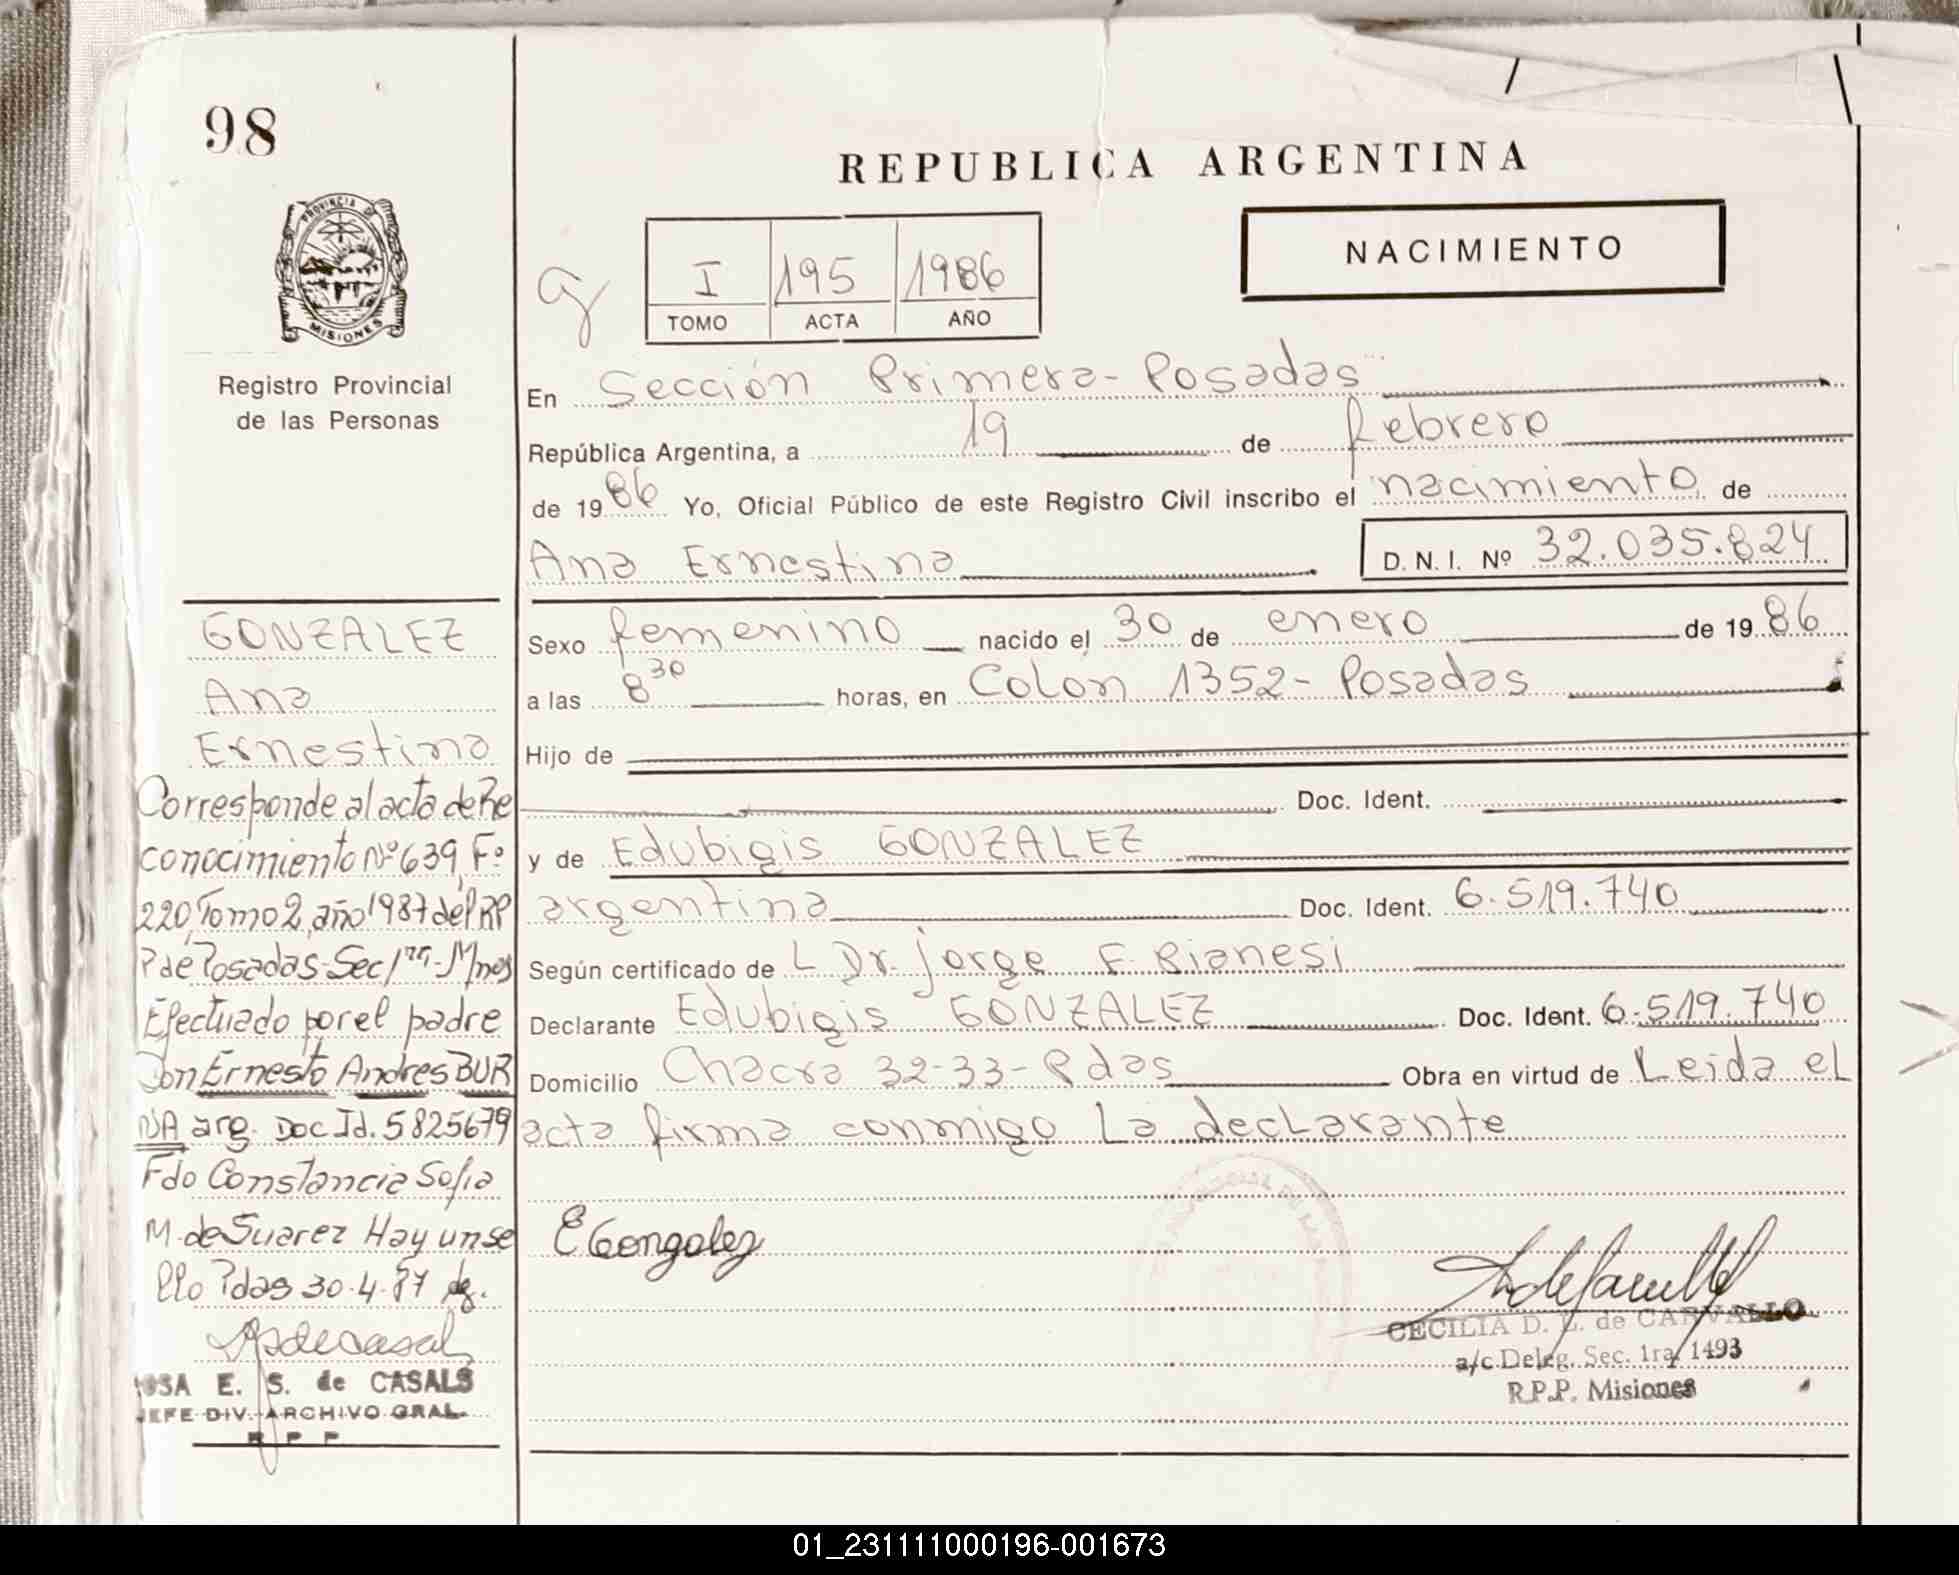 98
REPUBLICA ARGENTINA
PROVINCIA DE
MISIONES
Registro Provincial
de las Personas
I 195 1986
TOMO ACTA AÑO
NACIMIENTO
En Sección Primera - Posadas
República Argentina, a 19 de febrero
de 1986 Yo, Oficial Público de este Registro Civil inscribo el nacimiento de
Ana Ernestina D. N. I. Nº 32.035.824
Sexo femenino nacido el 30 de enero de 1986
a las 8 30 horas, en Colón 1352 - Posadas
Hijo de
Doc. Ident.
y de Edubigis GONZALEZ
argentina Doc. Ident. 6.519.740
Según certificado de L Dr. Jorge F. Bianesi
Declarante Edubigis GONZALEZ Doc. Ident. 6.519.740
Domicilio Chacra 32-33-Pdas Obra en virtud de Leida el
acta firma conmigo la declarante
E Gonzalez
CECILIA D. L. de CARVALLO
a/c Deleg. Sec. 1ra, 1493
R.P.P. Misiones
GONZALEZ
Ana
Ernestina
Corresponde al acta de Re
conocimiento Nº 639, Fº
220, Tomo 2, año 1987 del RP
P de Posadas-Sec 1ra-Mnes
Efectuado por el padre
Don Ernesto Andres BUR
NA arg. Doc Id. 5825679
Fdo Constancia Sofia
M. de Suarez Hay un se
llo Pdas 30-4-87
ROSA E. S. de CASALS
JEFE DIV. ARCHIVO GRAL.
R P P
01_231111000196-001673